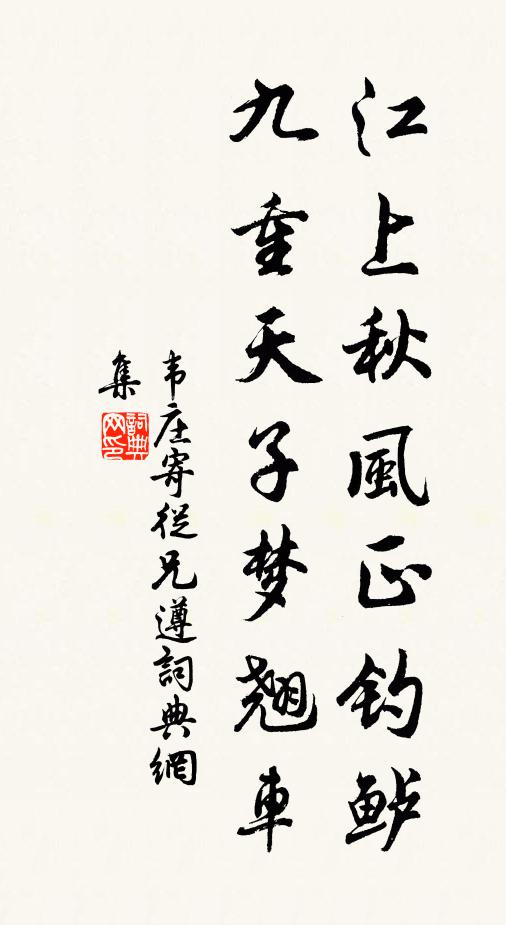 江上秋風正钓鲈
九重天子梦翘車
韦庄寄從兄遵詞典網
集
詞典网印